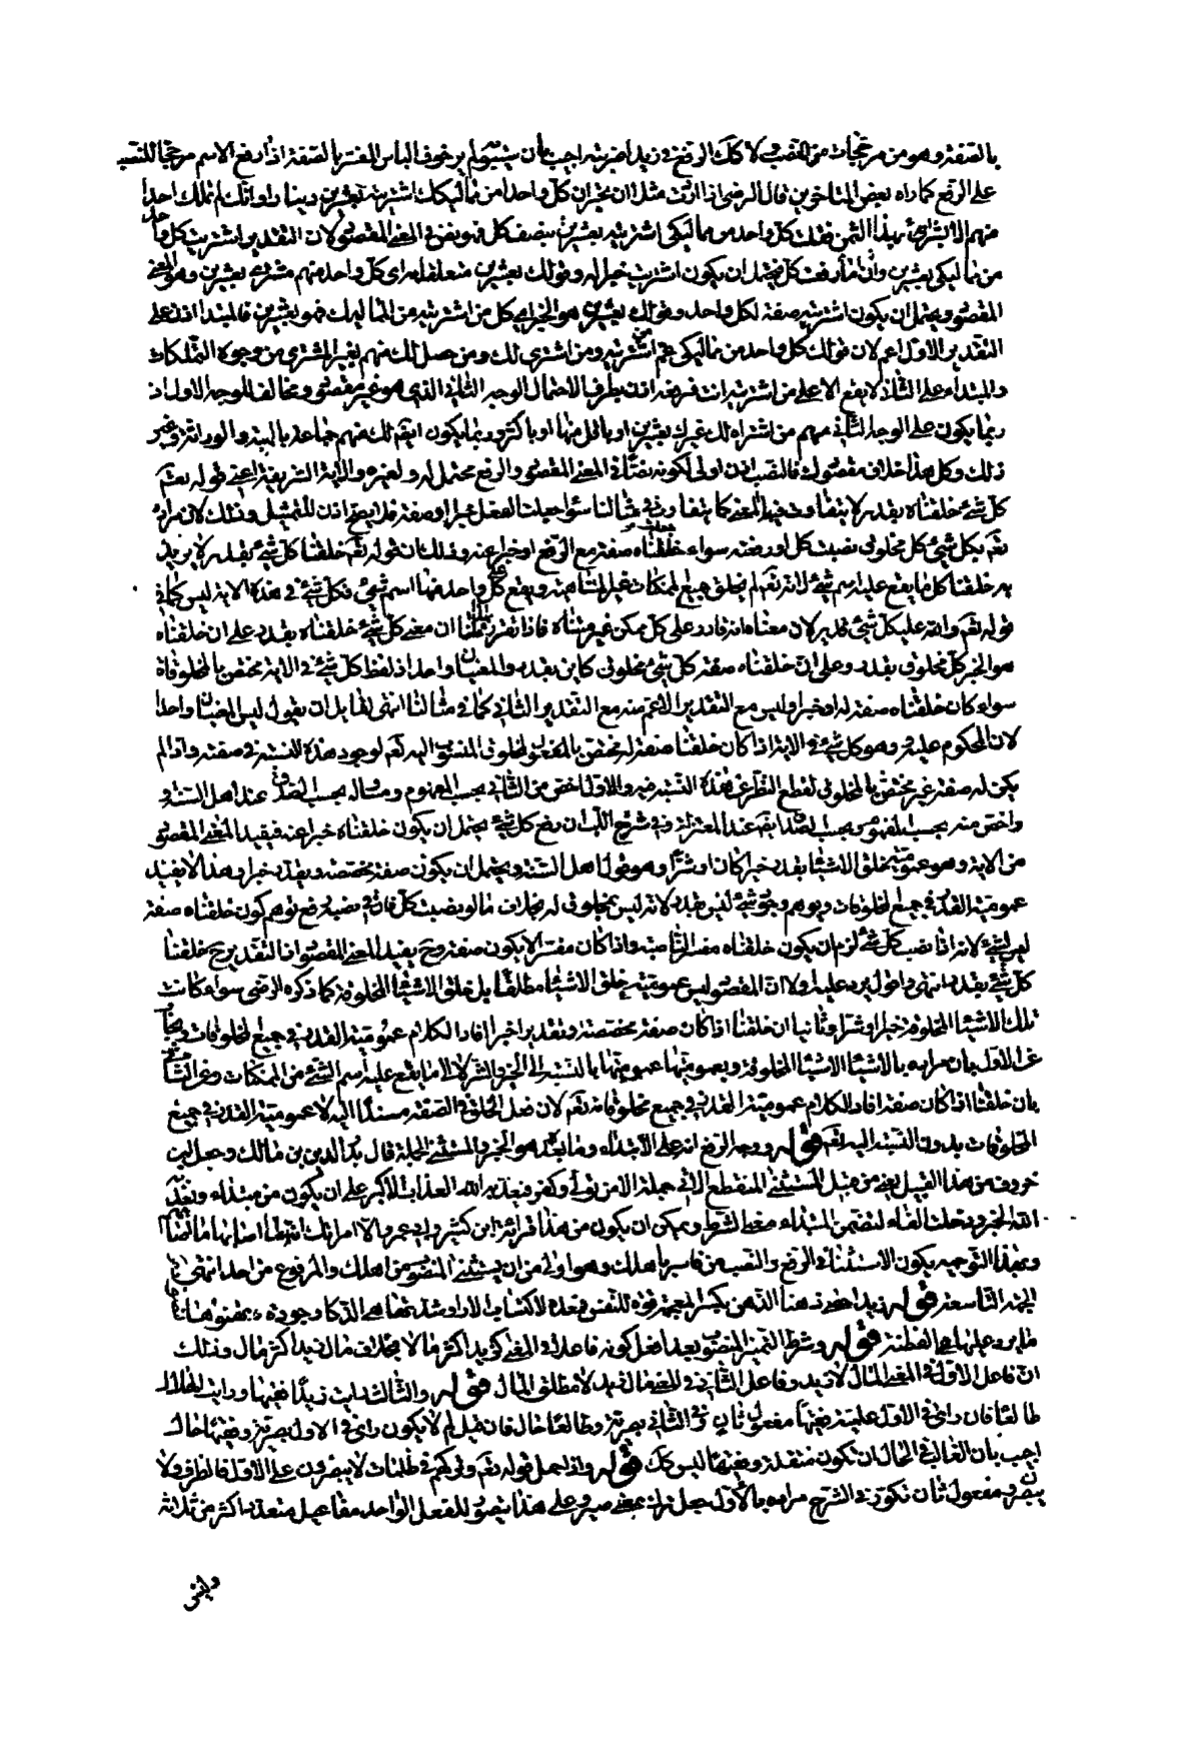 بالصفة وهو من مرجحات من النصب ولا كك الرفع في زيد اضربته اجيب بان سيبويه لم ير خوف الباس المفسر بالصفة اذا رفع الاسم مرجحا للنصب
على الرفع كما راه بعض المتاخرين قال الرضى اذا اردت مثلا ان تخبر ان كل واحد من مماليكك اشتريته بعشرين دينارا وانك لم تملك احدا
منهم الا بشراءك بهذا الثمن فقلت كل واحد من مماليكى اشتريته بعشرين بنصب كل فهو نص في المعنى المقصود لان التقدير اشتريت كل واحد
من مماليكى بعشرين وان رفعت كل فيحتمل ان يكون اشتريت خبرا له وقولك بعشرين متعلقا به اى كل واحد منهم مشترى بعشرين وهو المعنى
المقصود ويحتمل ان يكون اشتريته صفة لكل واحد وقولك بعشرين هو الخبر اى كل من اشتريته من المماليك فهو بعشرين فالمبتدا اذن على
التقدير الاول اعم لان قولك كل واحد من مماليكى عم من اشتريته ومن اشترى لك ومن حصل لك منهم بغير المشترى من وجوه التملكات
والمبتداء على الثانى لا يقع الا على من اشتريته انت فرفعه اذن مطرق لاحتمال الوجه الثانى الذى هو غير مقصود ومخالف للوجه الاول اذ
ربما يكون على الوجه الثانى منهم من اشتراه لك غيرك بعشرين او باقل منها او باكثر وربما يكون ايضا لك منهم جماعة بالهبة والوراثة وغير
ذلك وكل هذا خلاف مقصودك فالنصب اذن اولى لكونه نصا في المعنى المقصود والرفع محتمل له ولغيره والاية الشريفة اعنى قوله تعم
كل شئ خلقناه بقدر لا يتفاوت فيها المعنى كما يتفاوت في مثالنا سواء جعلت الفعل خبرا او صفة فلا يصح اذن للتمثيل وذلك لان مراده
تعم بكل شئ كل مخلوق نصبت كل او رفعته سواء جعلت خلقناه صفة مع الرفع او خبرا عنه وذلك ان قوله تعم خلقنا كل شئ بقدر لا يريد
به خلقنا كل ما يقع عليه اسم شئ لانه تعم لم يخلق جميع الممكنات غير المتناهية ويقع على كل واحد منها اسم شئ فكل شئ في هذه الاية ليس كما في
قوله تعم والله على كل شئ قدير لان معناه انه قادر على كل ممكن غير متناه فاذا تقرر هذا قلنا ان معنى كل شئ خلقناه بقدر على ان خلقناه
هو الخبر كل مخلوق بقدر وعلى ان خلقناه صفة كل شئ مخلوق كاين بقدر والمعنيان واحد اذ لفظ كل شئ في الاية مختص بالمخلوقات
سواء كان خلقناه صفة له او خبرا وليس مع التقدير الاعم منه مع التقدير الثانى كما في مثالنا انتهى لقايل ان يقول ليس المعنيان واحدا
لان المحكوم عليه وهو كل شئ في الاية اذا كان خلقنا صفة له مختص بالمخلوق المنسوب اليه تعم لوجود هذه النسبة في صفته واذا لم
يكن له صفة غير مختص بالمخلوق لقطع النظر عن هذه النسبة فيه والاول اخص من الثانى بحسب المفهوم ومساله بحسب الصدق عند اهل السنة و
واخص منه بحسب المفهوم وبحسب الصدق ايضا عند المعتزلة وفى شرح اللب ان رفع كل شئ يحتمل ان يكون خلقناه خبرا عنه فيفيد المعنى المقصود
من الاية وهو عمومية خلق الاشياء بقدر خيرا كان او شرا وهو قول اهل السنة ويحتمل ان يكون صفة مخصصة وبقدر خبرا وهذا لا يفيد
عمومية القدر في جميع المخلوقات ويوهم وجود شئ ليس بقدر لانه ليس بمخلوق له بخلاف ما لو نصبت كل فان في نصبه رفع توهم كون خلقناه صفة
لشئ لانه اذا نصب كل شئ لزم ان يكون خلقناه مفسر الناصبه واذا كان مفسرا لا يكون صفة وح يفيد المعنى المقصود اذ التقدير ح خلقنا
كل شئ بقدر انتهى واقول يرد عليه اولا ان المقصود ليس عمومية خلق الاشياء مطلقا بل خلق الاشياء المخلوقة كما ذكره الرضى سواء كانت
تلك الاشياء المخلوقة خيرا او شرا وثانيا ان خلقنا اذا كان صفة مخصصة وبقدر خبرا افاد الكلام عمومية القدر في جميع المخلوقات ويجاب
عن الاول بان مراده بالاشياء الاشياء المخلوقة وبعمومتها عمومتها بالنسبة الى الخير والشر لا الى ما يقع عليه اسم الشئ من الممكنات وعن الثانى
بان خلقنا اذا كان صفة افاد الكلام عمومية القدر في جميع مخلوقاته تعم لان فعل الخلق في الصفة مسندا اليه لا عمومية القدر في جميع
المخلوقات بدون النسبة اليه تعم قوله ووجه الرفع انه على الابتداء وما بعده هو الخبر والمستثنى الجملة قال بدر الدين بن مالك وجعل ابن
خروف من هذا القبيل يعنى من قبيل المستثنى المنقطع الاتى جملة الا من تولى وكفر فيعذبه الله العذاب الاكبر على ان يكون من مبتداء ويعذبه
الله الخبر ودخلت الفاء لتضمن المبتداء معنى الشرط ويمكن ان يكون من هذا قراءة ابن كثير وابى عمرو الا امراتك انه مصيبها ما اصابهم
وبهذا التوجيه يكون الاستثناء في الرفع والنصب من فاسر باهلك وهو اولى من ان يستثنى المنصوب من اهلك والمرفوع من احد انتهى
الجهة التاسعة قوله زيد احد ذهنا الذهن بكسر المعجمة قوة للنفس معدة لاكتساب الاراء وشدتها هى الذكا وجودته
ما يرد عليها هى الفطنة قوله وشرط التميز المنصوب بعد افعل كونه فاعلا في المعنى كزيد اكثر مالا بخلاف مال زيد اكثر مال وذلك
ان فاعل الاول في المعنى المال لا زيد وفاعل الثانى في المعنى مال زيد لا مطلق المال قوله والثالث رايت زيدا فقيها ورايت الهلال
طالعا فان راى في الاول علمية وفقيها مفعول ثان وفى الثانى بصرية وطالعا حال فان قيل لم لا يكون راى في الاول بصرية وفقيها حالا
اجيب بان الغالب في الحال ان تكون منتقلة وفقيها ليس كك قوله واذا حمل قوله تعم وتركهم في ظلمات لا يبصرون على الاول فالظرف ولا
يبصرون مفعول ثان تكرر في الشرح مراده بالاول جعل ترك بمعنى صير وعلى هذا يتصور للفعل الواحد مفاعيل متعددة اكثر من ثلاثة